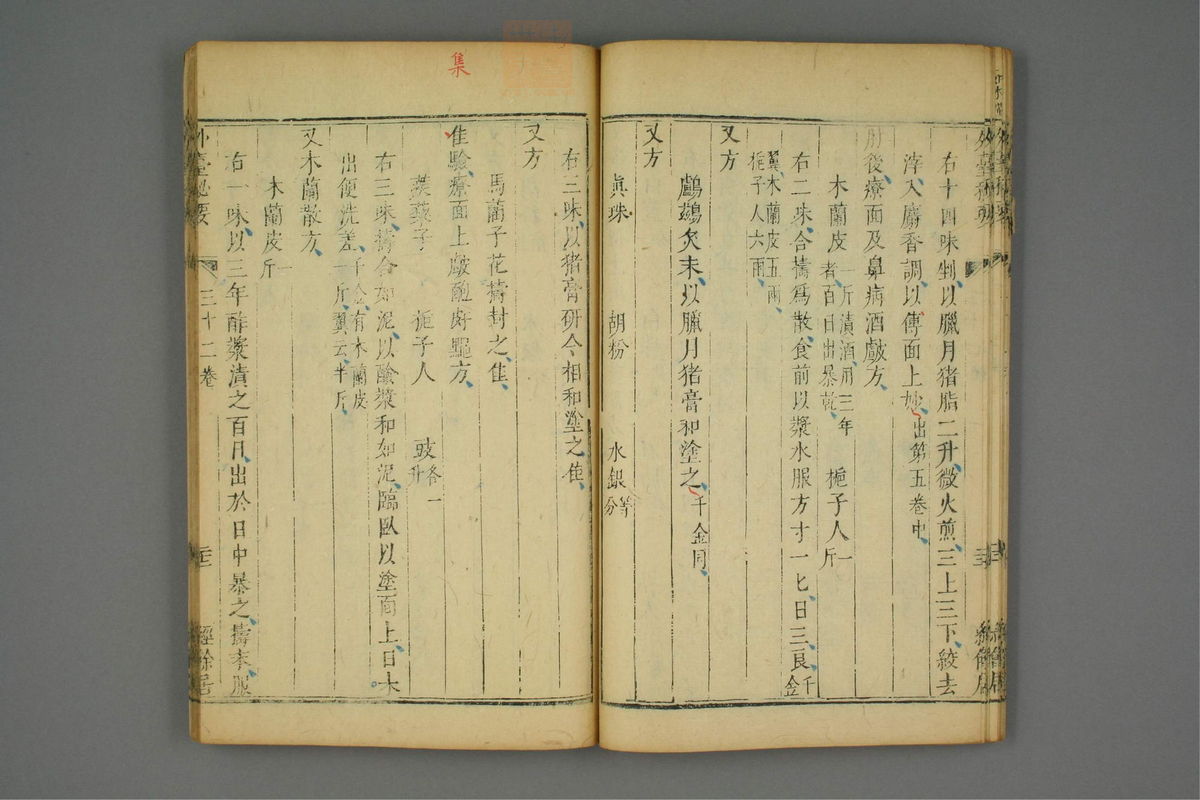 右十四味剉以臘月猪脂二升微火煎三上三下絞去
滓入麝香調以傅面上妙出第五卷中
肘後療面及鼻病酒皶方
木蘭皮一斤漬酒用三年者百日出暴乾 梔子人一斤
右二味合擣爲散食前以漿水服方寸一匕日三良千金
翼木蘭皮五兩梔子人六兩
又方
鸕鷀灰末以臘月猪膏和塗之千金同
又方
真珠 胡粉 水銀等分
右三味以猪膏研令相和塗之佳
又方
馬藺子花擣封之佳
隹驗療面上皶皰皯䵳方
蒺藜子 梔子人 豉各一升
右三味擣合如泥以酢漿和如泥臨臥以塗面上日未
出便洗差千金有木蘭皮一斤翼云半斤
又木蘭散方
木蘭皮一斤
右一味以三年酢漿漬之百日出於日中暴之擣末服
外臺秘要 三十二卷 經餘居
集